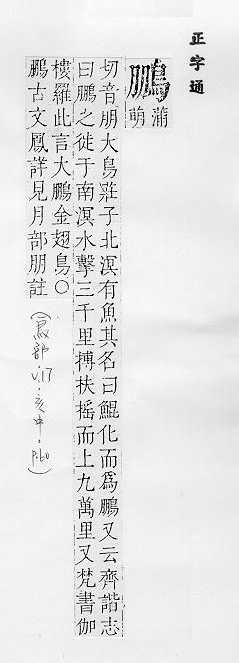 正字通
鵬
蒲
萌
切音朋大鳥莊子北溟有魚其名曰鯤化而爲鵬又云齊諧志
曰鵬之徙于南溟水擊三千里搏扶搖而上九萬里又梵書伽
樓羅此言大鵬金翅鳥○
鵬古文鳳詳見月部朋註
(鳥部.v.17.亥中.p.60)